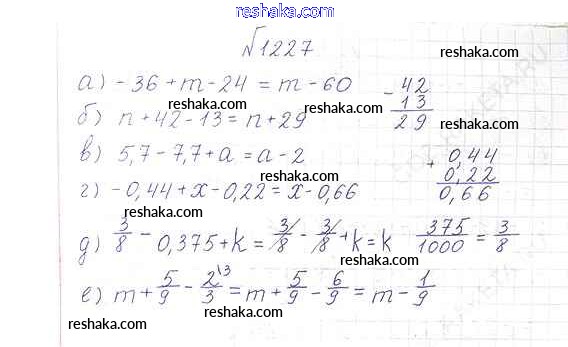 www.reshaka.com
№1227
reshaka.com
а) - 36 + m - 24 = m - 60
- 42
13
29
reshaka.com
reshaka.com
б) n + 42 - 13 = n + 29
reshaka.com
в) 5,7 - 7,7 + a = a - 2
+ 0,44
0,22
0,66
reshaka.com
г) - 0,44 + x - 0,22 = x - 0,66
reshaka.com
reshaka.com
д) 3/8 - 0,375 + k = 3/8 - 3/8 + k = k 375/1000 = 3/8
reshaka.com
reshaka.com
е) m + 5/9 - 2\3/3 = m + 5/9 - 6/9 = m - 1/9
reshaka.com
reshaka.com
www.reshaka.com